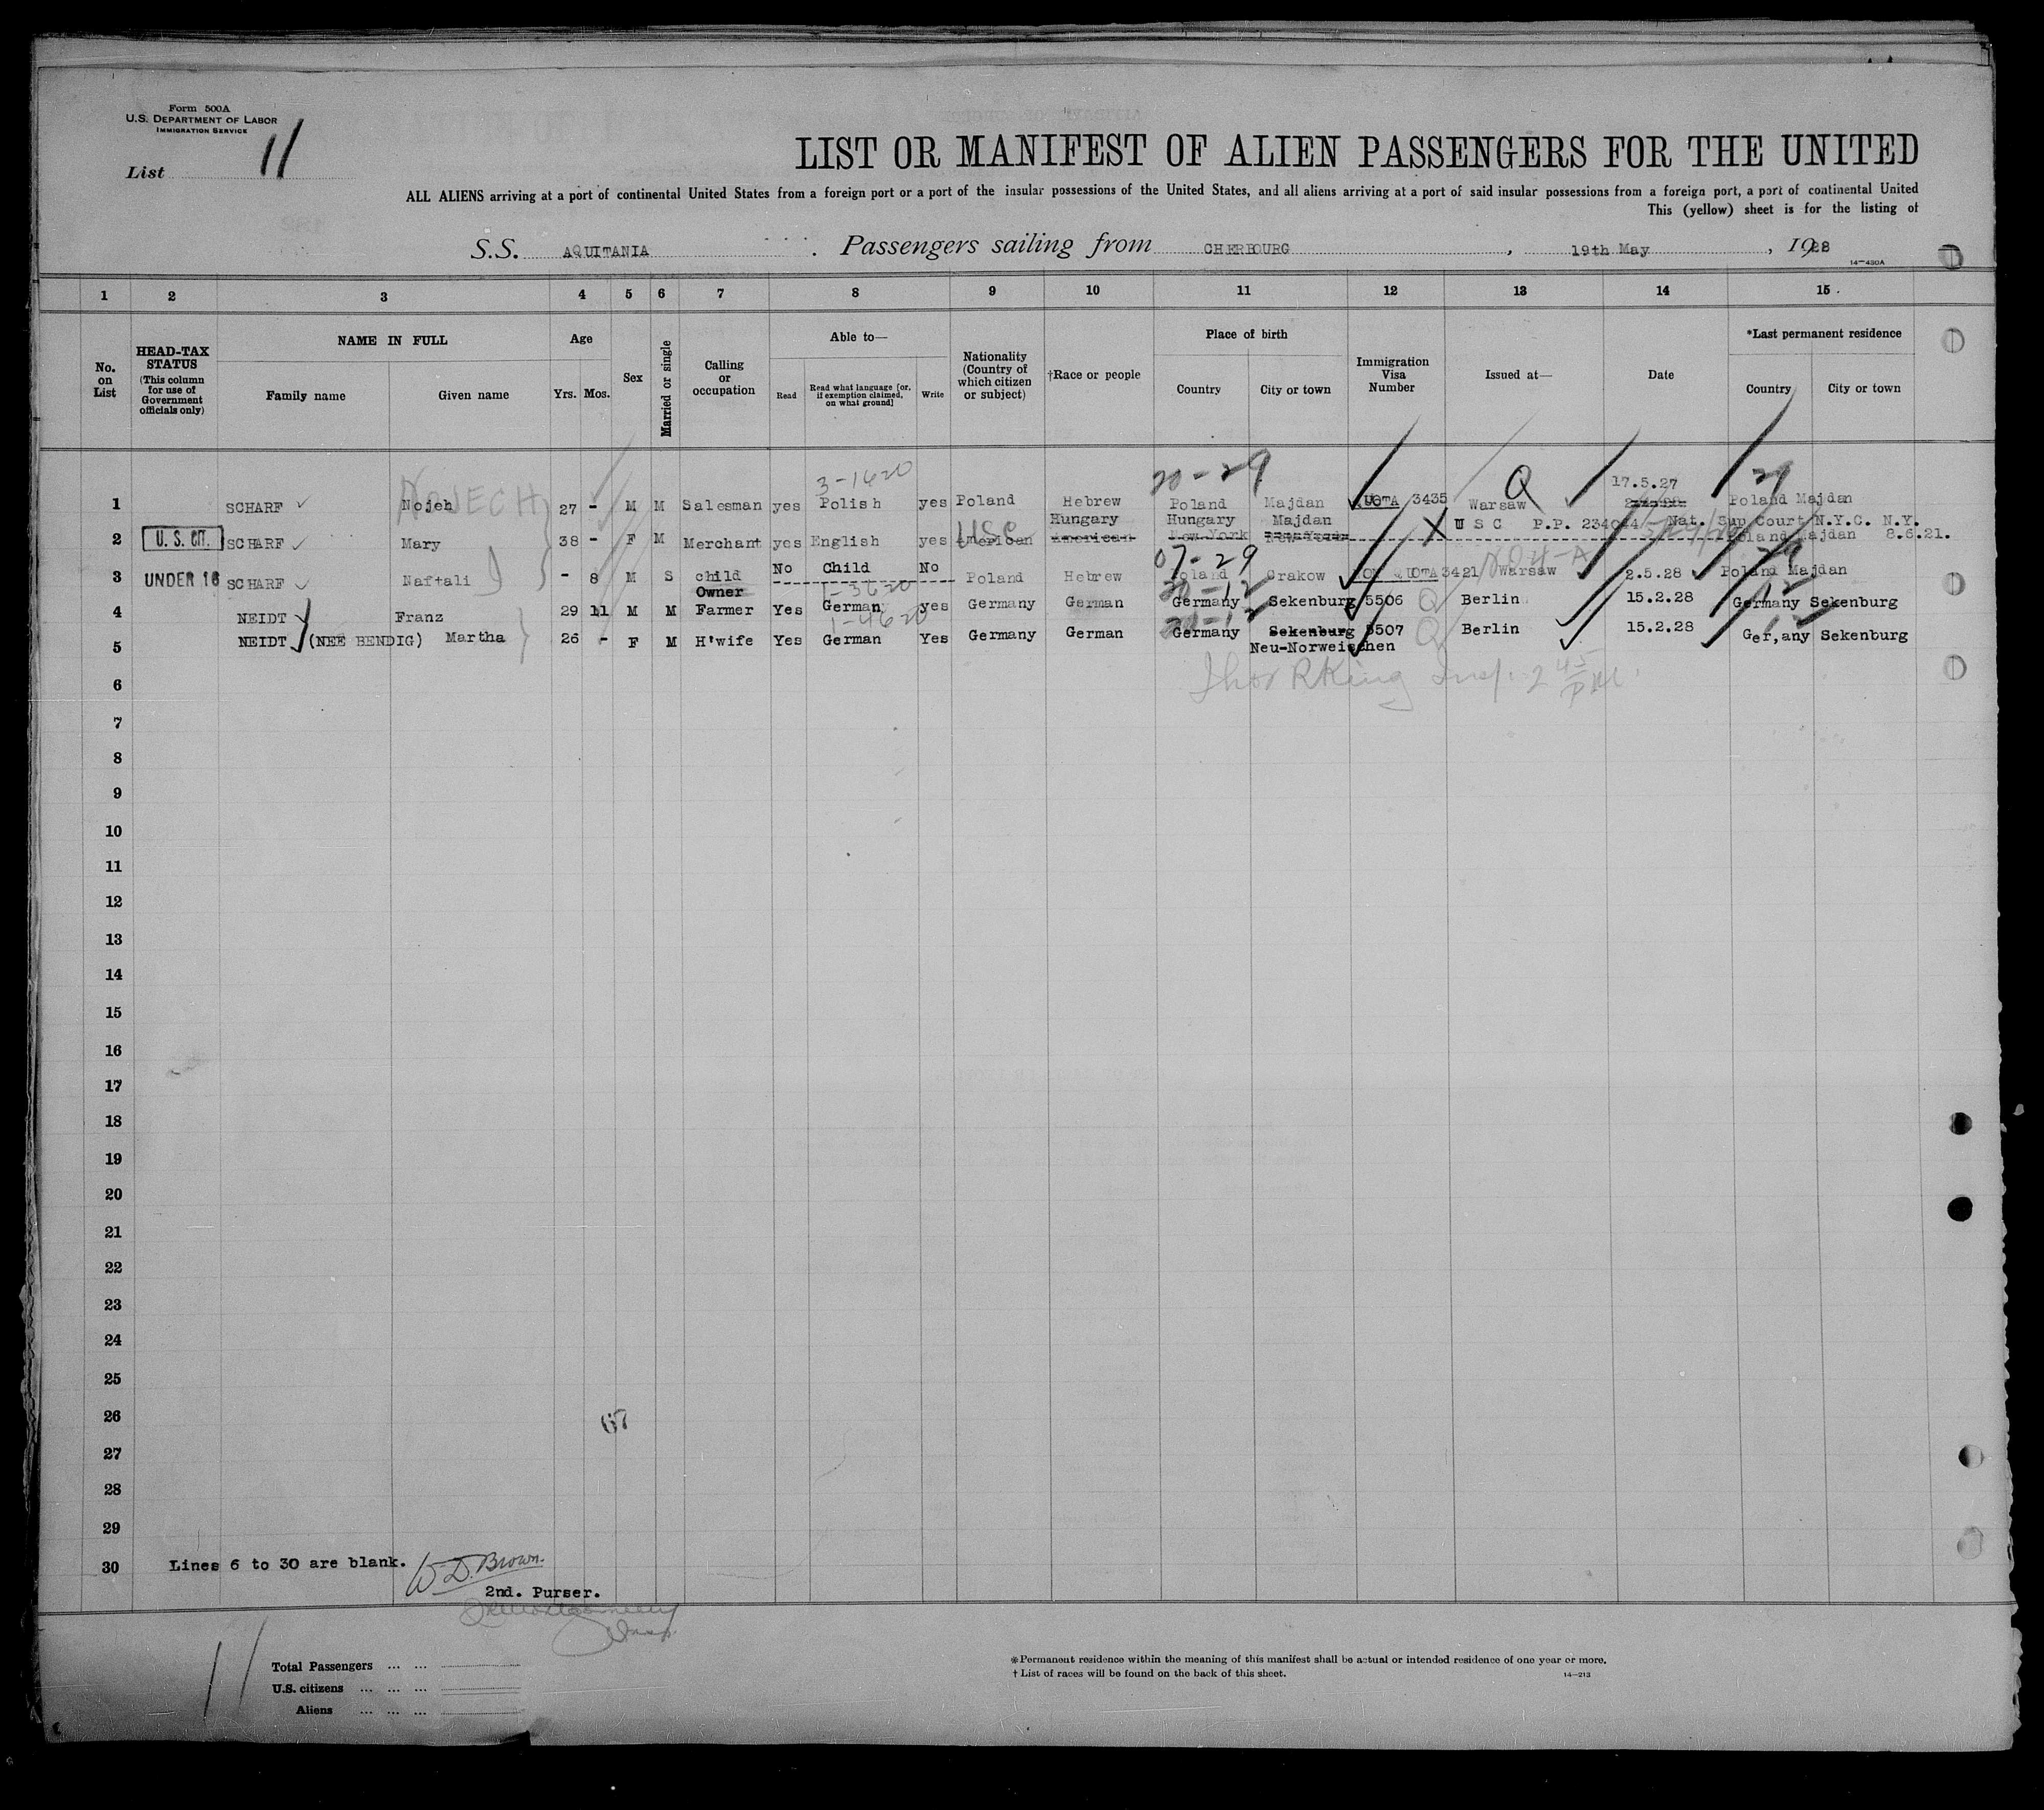 Form 500A
U.S. DEPARTMENT OF LABOR
IMMIGRATION SERVICE
List 11
LIST OR MANIFEST OF ALIEN PASSENGERS FOR THE UNITED
ALL ALIENS arriving at a port of continental United States from a foreign port or a port of the insular possessions of the United States, and all aliens arriving at a port of said insular possessions from a foreign port, a port of continental United
This (yellow) sheet is for the listing of
S.S. AQUITANIA . Passengers sailing from CHERBOURG , 19th May , 1928
14-430A
1 2 3 4 5 6 7 8 9 10 11 12 13 14 15
No. on List
HEAD-TAX STATUS (This column for use of Government officials only)
NAME IN FULL
Family name Given name
Age
Yrs. Mos.
Sex
Married or single
Calling or occupation
Able to—
Read
Read what language [or, if exemption claimed, on what ground]
Write
Nationality (Country of which citizen or subject)
†Race or people
Place of birth
Country City or town
Immigration Visa Number
Issued at—
Date
*Last permanent residence
Country City or town
3-1620 20-29 Q 17.5.27 29
1 SCHARF Nojeh NOJECH 27 - M M Salesman yes Polish yes Poland Hebrew Poland Majdan QUOTA 3435 Warsaw Poland Majdan
Hungary Hungary Majdan U S C P.P. 234044 Nat. Sup Court N.Y.C. N.Y.
2 U. S. CIT. SCHARF Mary 38 - F M Merchant yes English yes American USC American New-York New-York X Poland Majdan 8.6.21.
No Child No 07-29 NQ 4-A 29
3 UNDER 16 SCHARF Naftali - 8 M S child Poland Hebrew Poland Crakow NON QUOTA 3421 Warsaw 2.5.28 Poland Majdan
Owner 1-3620
4 NEIDT Franz 29 11 M M Farmer Yes German yes Germany German Germany Sekenburg 5506 Q Berlin 15.2.28 Germany Sekenburg
1-4620
5 NEIDT (NEE BENDIG) Martha 26 - F M H'wife Yes German Yes Germany German Germany Sekenburg 5507 Q Berlin 15.2.28 Ger,any Sekenburg
Neu-Norweischen
RKing Insp. 2 45 PM.
6
7
8
9
10
11
12
13
14
15
16
17
18
19
20
21
22
23
24
25
26
67
27
28
29
30 Lines 6 to 30 are blank. W. D. Brown.
2nd. Purser.
11
Total Passengers ... ...
U.S. citizens ... ... ...
Aliens ... ... ...
*Permanent residence within the meaning of this manifest shall be actual or intended residence of one year or more.
†List of races will be found on the back of this sheet. 14-213